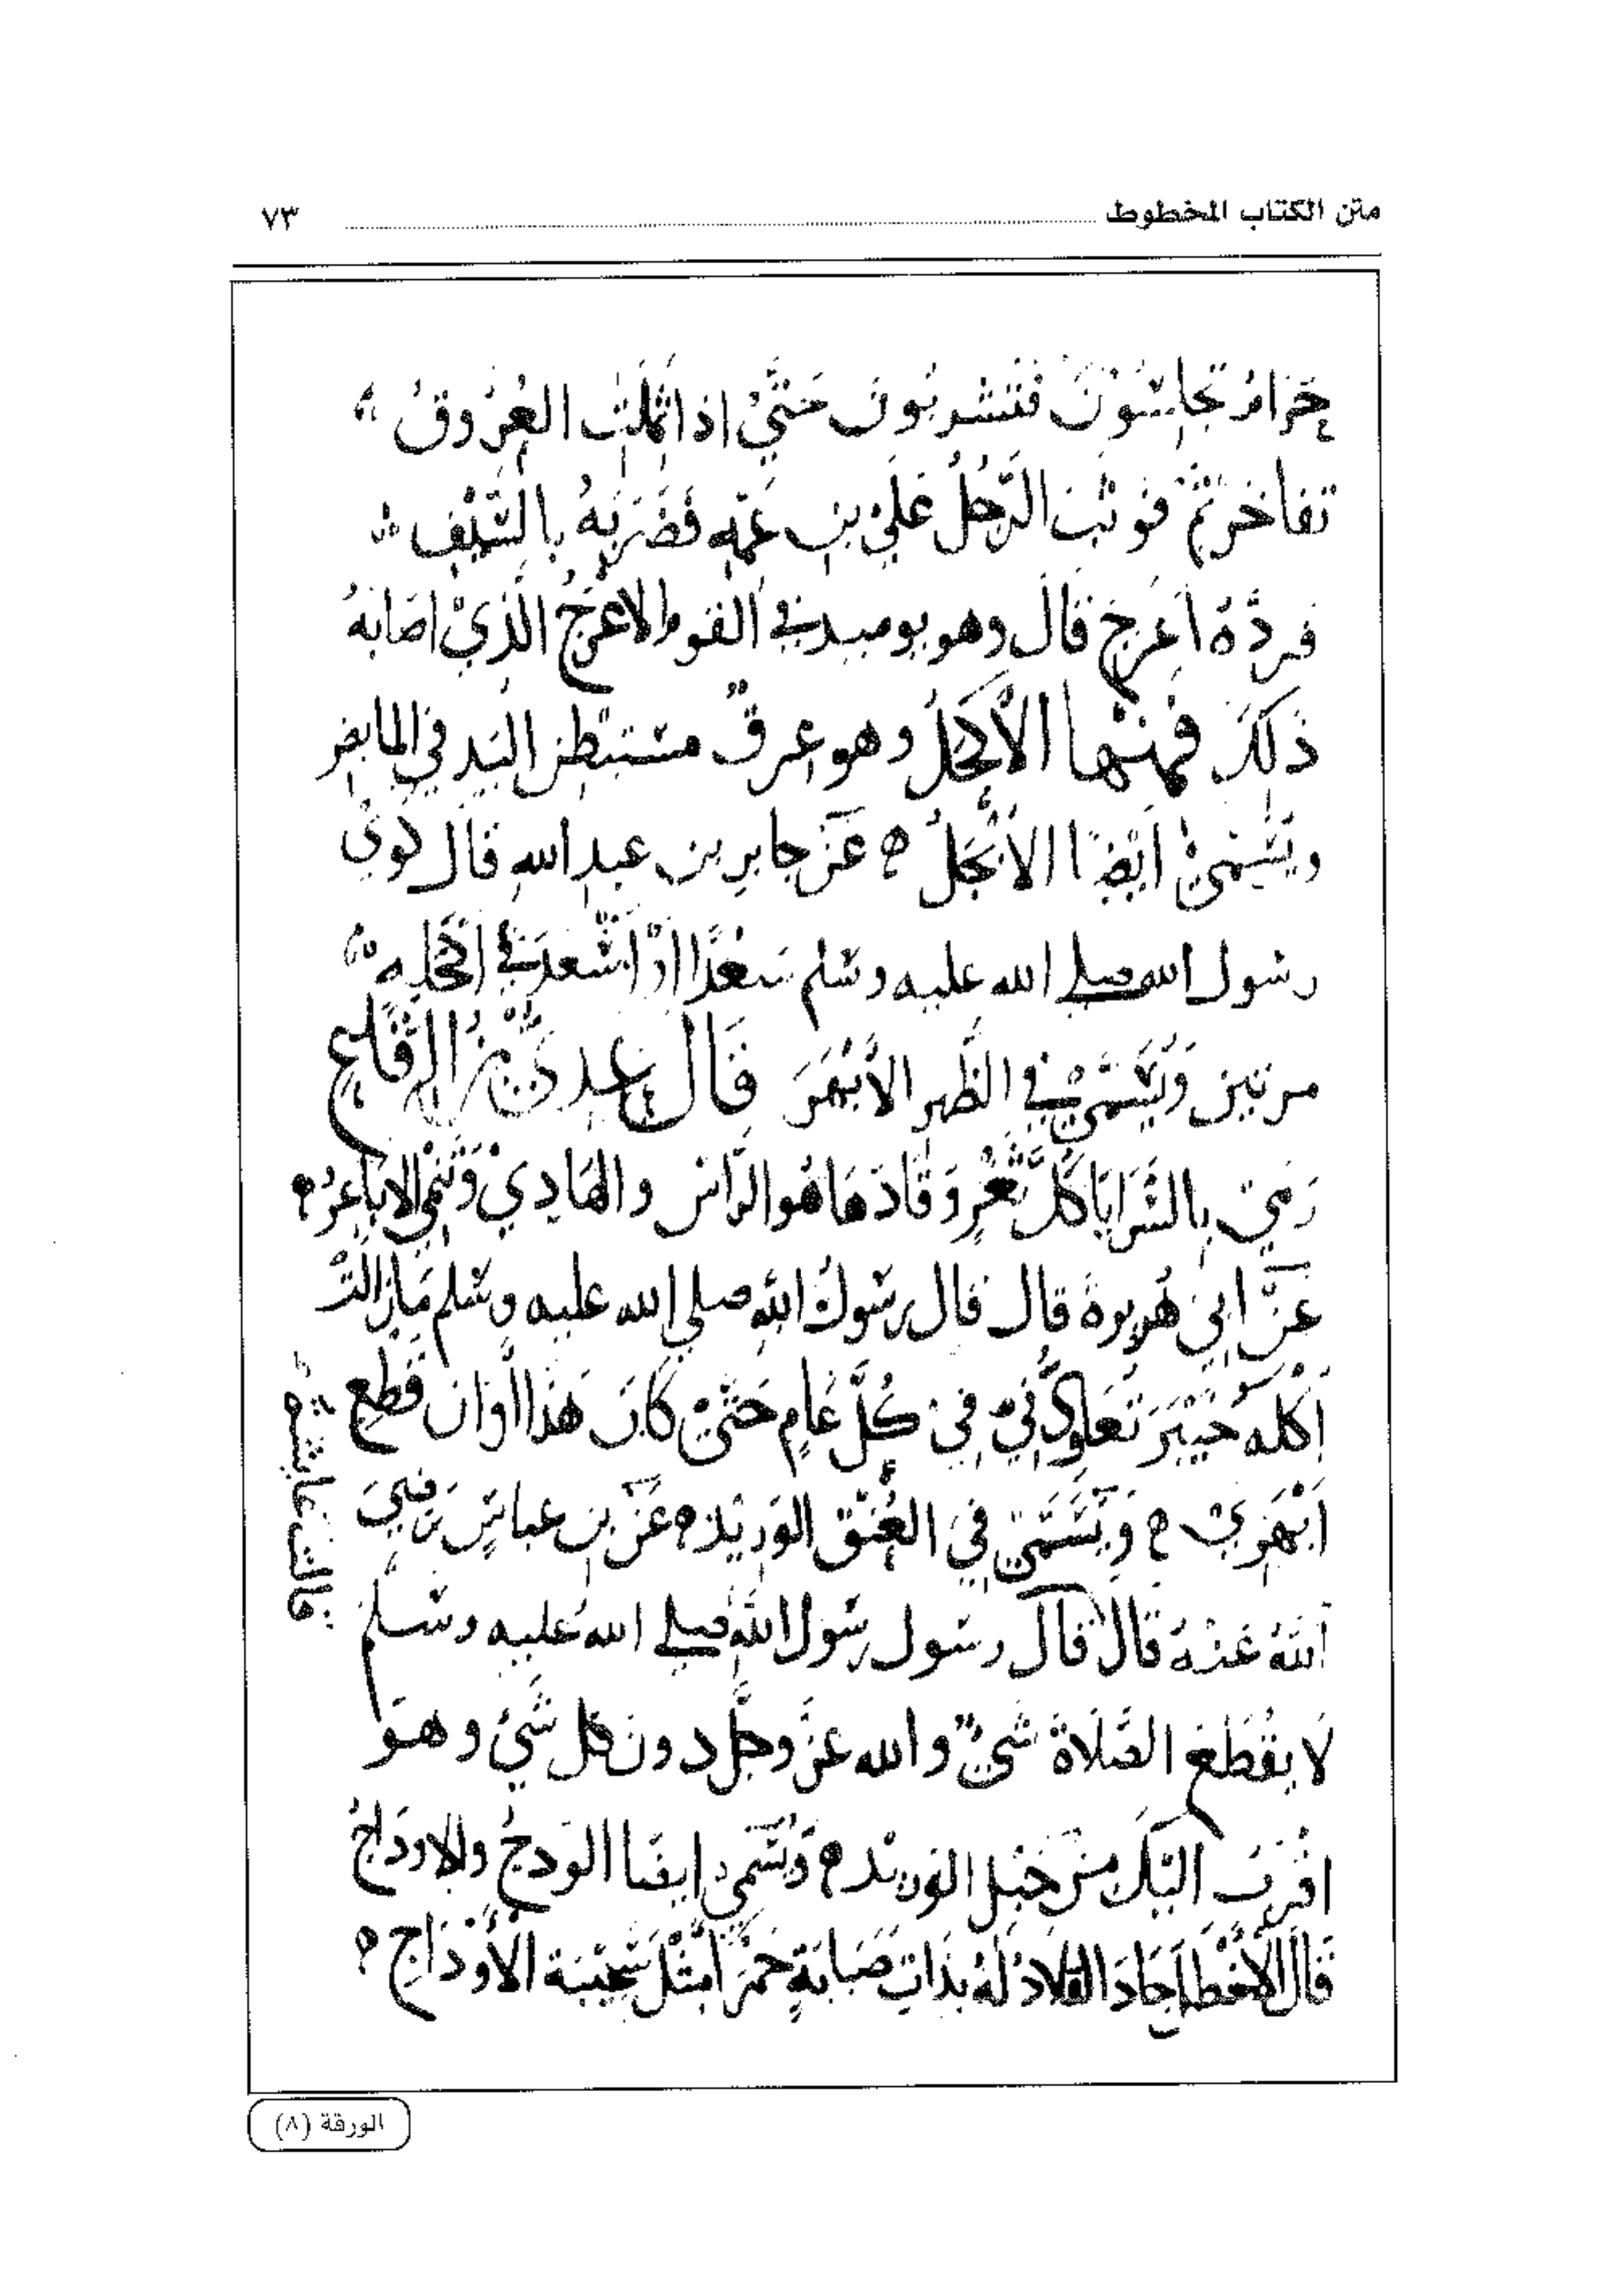 متن الكتاب المخطوط ٧٣
حرام تجلسون فتشربون حَتَّىْ اذا ثملت العُرُوقُ
تفاخرتم فوثبَ الرَّجُلُ عَليْ بن عَمِّهِ فَضَرَبَهُ بالسَّيْفِ
فردَّهُ اَعرج قالَ وهو يوميد في القوم الاعرَجُ الَّذِيْ اصَابَهُ
ذَلكَ فمنْها الاَكحَلُ وهو عِرقٌ مستبطن اليَد في المابض
ويُسَمىْ اَيْضًا الاَبْجَلُ ه عَنْ جابرِ بن عبد اللهِ قَالَ كَوَىْ
رسول الله صلي الله عليه وسلم سَعْدًا اوْ اسْعَدَ في اكحَلِهِ
مرتين وَيُسَمَّىْ في الظَّهرِ الاَبْهَرَ قَالَ عدىّ بْنُ الرِقَاع
رَمىَ بِالسَّرايَا كُلَّ ثَغْرٍ وَقَادَهَا هُو الرَّاسُ والهَادِيْ وَنحنُ الاباعرُ ه
عَنْ ابي هُريرة قال قال رسُولُ اللهِ صلي الله عليه وسَلم مَا زالت
اَكْله خَيْبَرَ تُعَاوِدُنِيْ في كُلِّ عَامٍ حَتَّىْ كَانَ هَذَا اَوَانَ قَطع
اَبْهَرِيْ ه وَيُسَمَّى في العُنق الوَريد ه عَنْ بن عباسٍ رَضِيَ
قالت عايشه
اَللهُ عَنْهُ قَالَ قَالَ رسول رسُول اللهِ صلي الله عليه وسلم
لاَ يقْطَع الصَّلاَةَ شىْءٌ والله عزَّ وجَلَّ دون كل شَيْ وهوَ
اقْرَبُ اليْكَ منْ حَبْلِ الوَريد ه وَيُسَمىْ ايضا الوَدجُ والاودَاجُ
قَالَ الاَخْطل اَجَادَ القلادُ لَهُ بذاتِ صَبابَةٍ حَمْرَا مِثْل سَخيْبَة الاَوْدَاجِ ه
الورقة (٨)